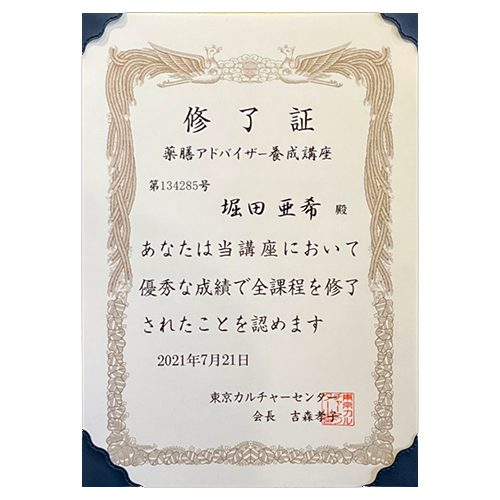 修了証
薬膳アドバイザー養成講座
第134285号
堀田亜希 殿
あなたは当講座において
優秀な成績で全課程を修了
されたことを認めます
2021年7月21日
東京カルチャーセンター
会長 吉森孝子